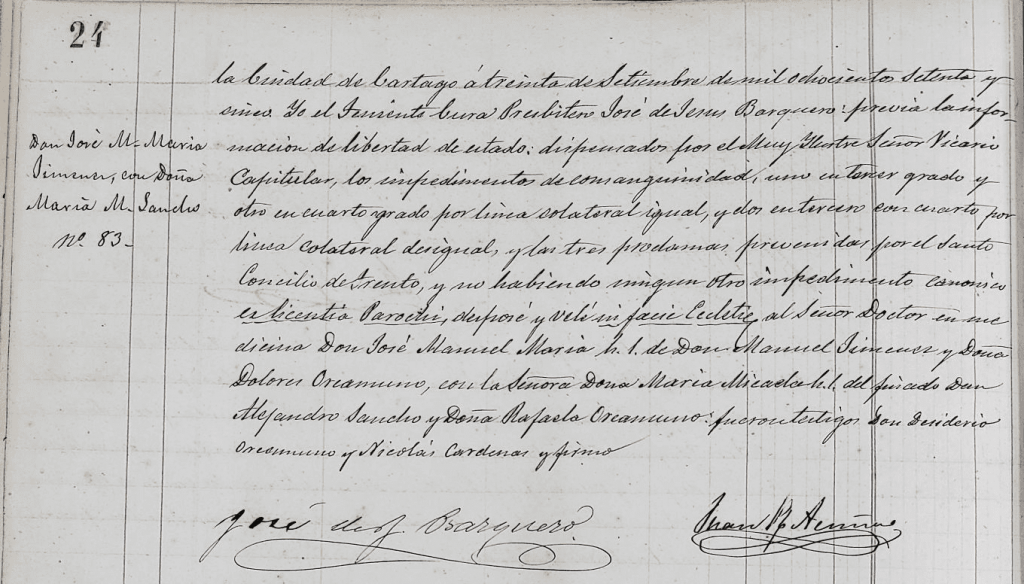 24
la Ciudad de Cartago á treinta de Setiembre de mil ochocientos setenta y
cinco. Yo el Teniente Cura Presbitero José de Jesus Barquero: previa la infor-
macion de libertad de estado: dispensados por el Muy Ilustre Señor Vicario
Capitular, los impedimentos de consanguinidad, uno en tercer grado y
otro en cuarto grado por linea colateral igual, y dos en tercero con cuarto por
linea colateral desigual, y las tres proclamas prevenidas por el Santo
Concilio de Trento, y no habiendo ningun otro impedimento canonico
ex licentia Parochi, desposé y velé in facie Eccletie, al Señor Doctor en me
dicina Don José Manuel Maria h. l. de Don Manuel Jimenez y Doña
Dolores Oreamuno, con la Señora Doña Maria Micaela h. l. del finado Don
Alejandro Sancho y Doña Rafaela Oreamuno: fueron testigos Don Desiderio
Oreamuno y Nicolás Cardenas y firmo
Don José M- Maria
Jimenez, con Doña
Maria M- Sancho
Nº 83-
José de J Barquero
Juan R Acuña